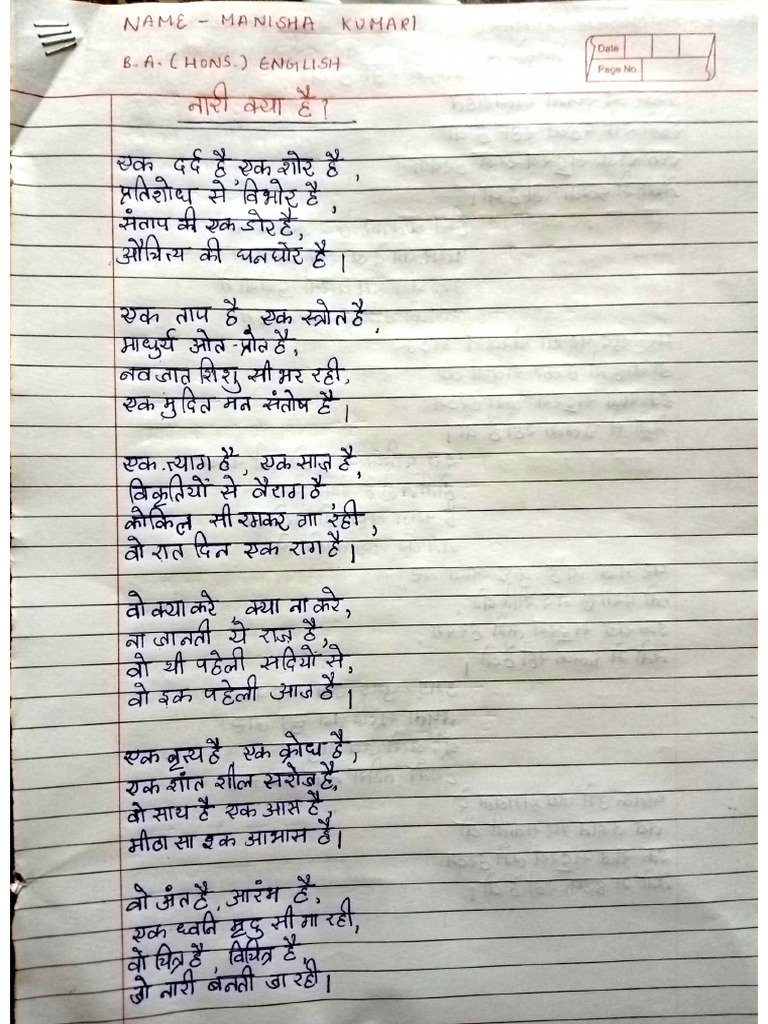 NAME - MANISHA KUMARI
B.A. (HONS.) ENGLISH
Date
Page No.
नारी क्या है ?
एक दर्द है, एक शोर है,
प्रतिशोध से विभोर है,
संताप की एक डोर है,
औचित्य की घनघोर है।
एक ताप है एक स्त्रोत है,
माधुर्य ओत-प्रोत है,
नवजात शिशु सी भर रही,
एक मुदित मन संतोष है।
एक त्याग है, एक साज़ है,
विकृतियों से वैराग है,
कोकिल सी रमकर गा रही,
वो रात दिन एक राग है।
वो क्या करे, क्या ना करे,
ना जानती ये राज़ है,
वो थी पहेली सदियों से,
वो इक पहेली आज है।
एक नृत्य है एक क्रोध है,
एक शांत शील सरोज है,
वो साथ है एक आस है,
मीठा सा इक आभास है।
वो अंत है, आरंभ है,
एक ध्वनि मृदु सी गा रही,
वो चित्र है, विचित्र है,
जो नारी बनती जा रही।